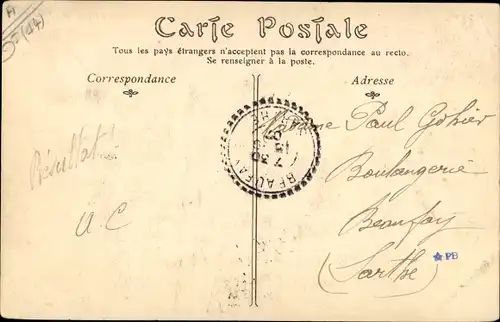 Carte Postale
Tous les pays étrangers n'acceptent pas la correspondance au recto.
Se renseigner à la poste.
Correspondance
Adresse
BEAUFAY
7 30
15
Paul Gohier
Boulangerie
Beaufay
(Sarthe)
Résultat
PB